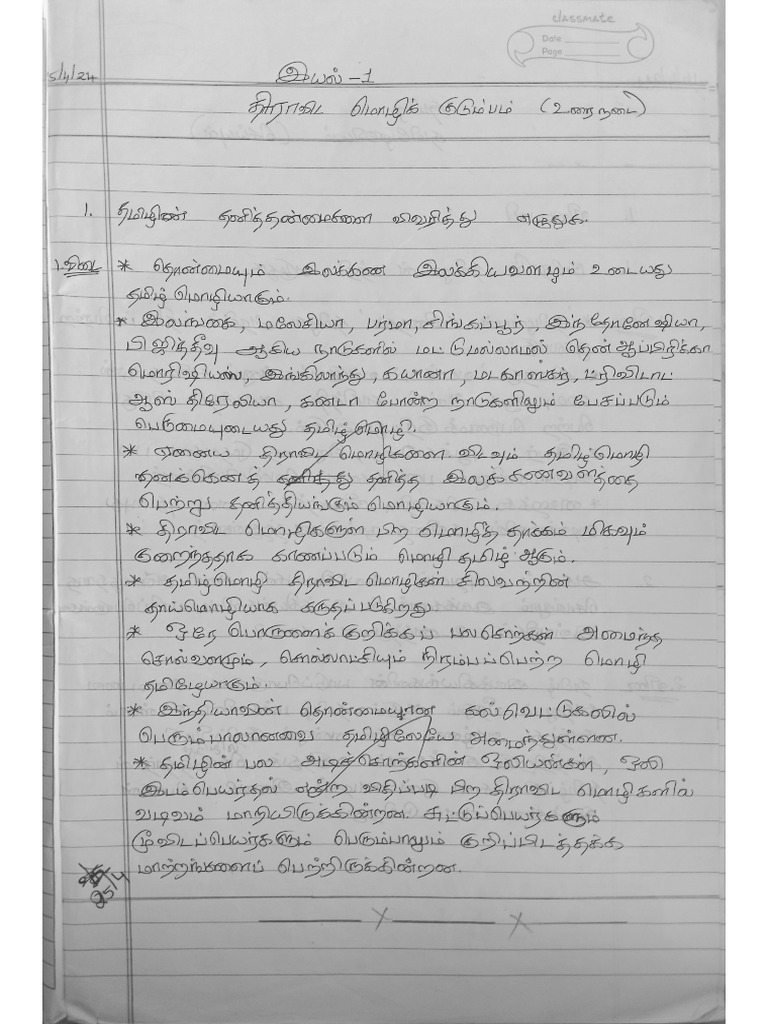 classmate
Date
Page
5/4/24
இயல் -1
திராவிட மொழிக் குடும்பம் (உரைநடை)
1. தமிழின் தனித்தன்மைகளை விவரித்து எழுதுக.
1.விடை * தொன்மையும் இலக்கண இலக்கியவளமும் உடையது
தமிழ் மொழியாகும்.
* இலங்கை, மலேசியா, பர்மா, சிங்கப்பூர், இந்தோனேஷியா,
பிஜித்தீவு ஆகிய நாடுகளில் மட்டுமல்லாமல் தென் ஆப்பிரிக்கா
மொரிஷியஸ், இங்கிலாந்து, கயானா, மடகாஸ்கர், ட்ரினிடாட்
ஆஸ்திரேலியா, கனடா போன்ற நாடுகளிலும் பேசப்படும்
பெருமையுடையது தமிழ்மொழி.
* ஏனைய திராவிட மொழிகளை விடவும் தமிழ்மொழி
தனக்கெனத் தனித்த இலக்கணவளத்தை
பெற்று தனித்தியங்கும் மொழியாகும்.
* திராவிட மொழிகளுள் பிற மொழித் தாக்கம் மிகவும்
குறைந்ததாக காணப்படும் மொழி தமிழ் ஆகும்.
* தமிழ்மொழி திராவிட மொழிகள் சிலவற்றின்
தாய்மொழியாக கருதப்படுகிறது
* ஒரே பொருளைக் குறிக்கப் பலசொற்கள் அமைந்த
சொல்வளமும், சொல்லாட்சியும் நிரம்பப்பெற்ற மொழி
தமிழேயாகும்.
* இந்தியாவின் தொன்மையான கல்வெட்டுகளில்
பெரும்பாலானவை தமிழிலேயே அமைந்துள்ளன.
* தமிழின் பல அடிச்சொற்களின் ஒலியன்கள், ஒலி
இடம்பெயர்தல் என்ற விதிப்படி பிற திராவிட மொழிகளில்
வடிவம் மாறியிருக்கின்றன. சுட்டுப்பெயர்களும்
மூவிடப்பெயர்களும் பெரும்பாலும் குறிப்பிடத்தக்க
மாற்றங்களைப் பெற்றிருக்கின்றன.
25/4